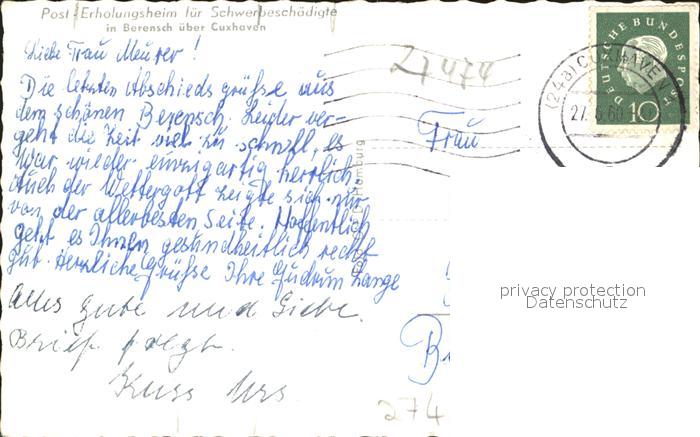 Post-Erholungsheim für Schwerbeschädigte
in Berensch über Cuxhaven
Liebe Frau Meurer!
Die letzten Abschiedsgrüße aus
dem schönen Berensch. Leider ver-
geht die Zeit viel zu schnell, es
war wieder einzigartig herrlich.
Auch der Wettergott zeigte sich nur
von der allerbesten Seite. Hoffentlich
geht es Ihnen gesundheitlich recht
gut. Herzliche Grüße Ihre Gudrun Lange
Alles Gute und Liebe.
Brief folgt.
Kuss
27474
Hamburg
Frau
DEUTSCHE BUNDESPOST
10
(24a) CUXHAVEN
27. 60
274
privacy protection
Datenschutz